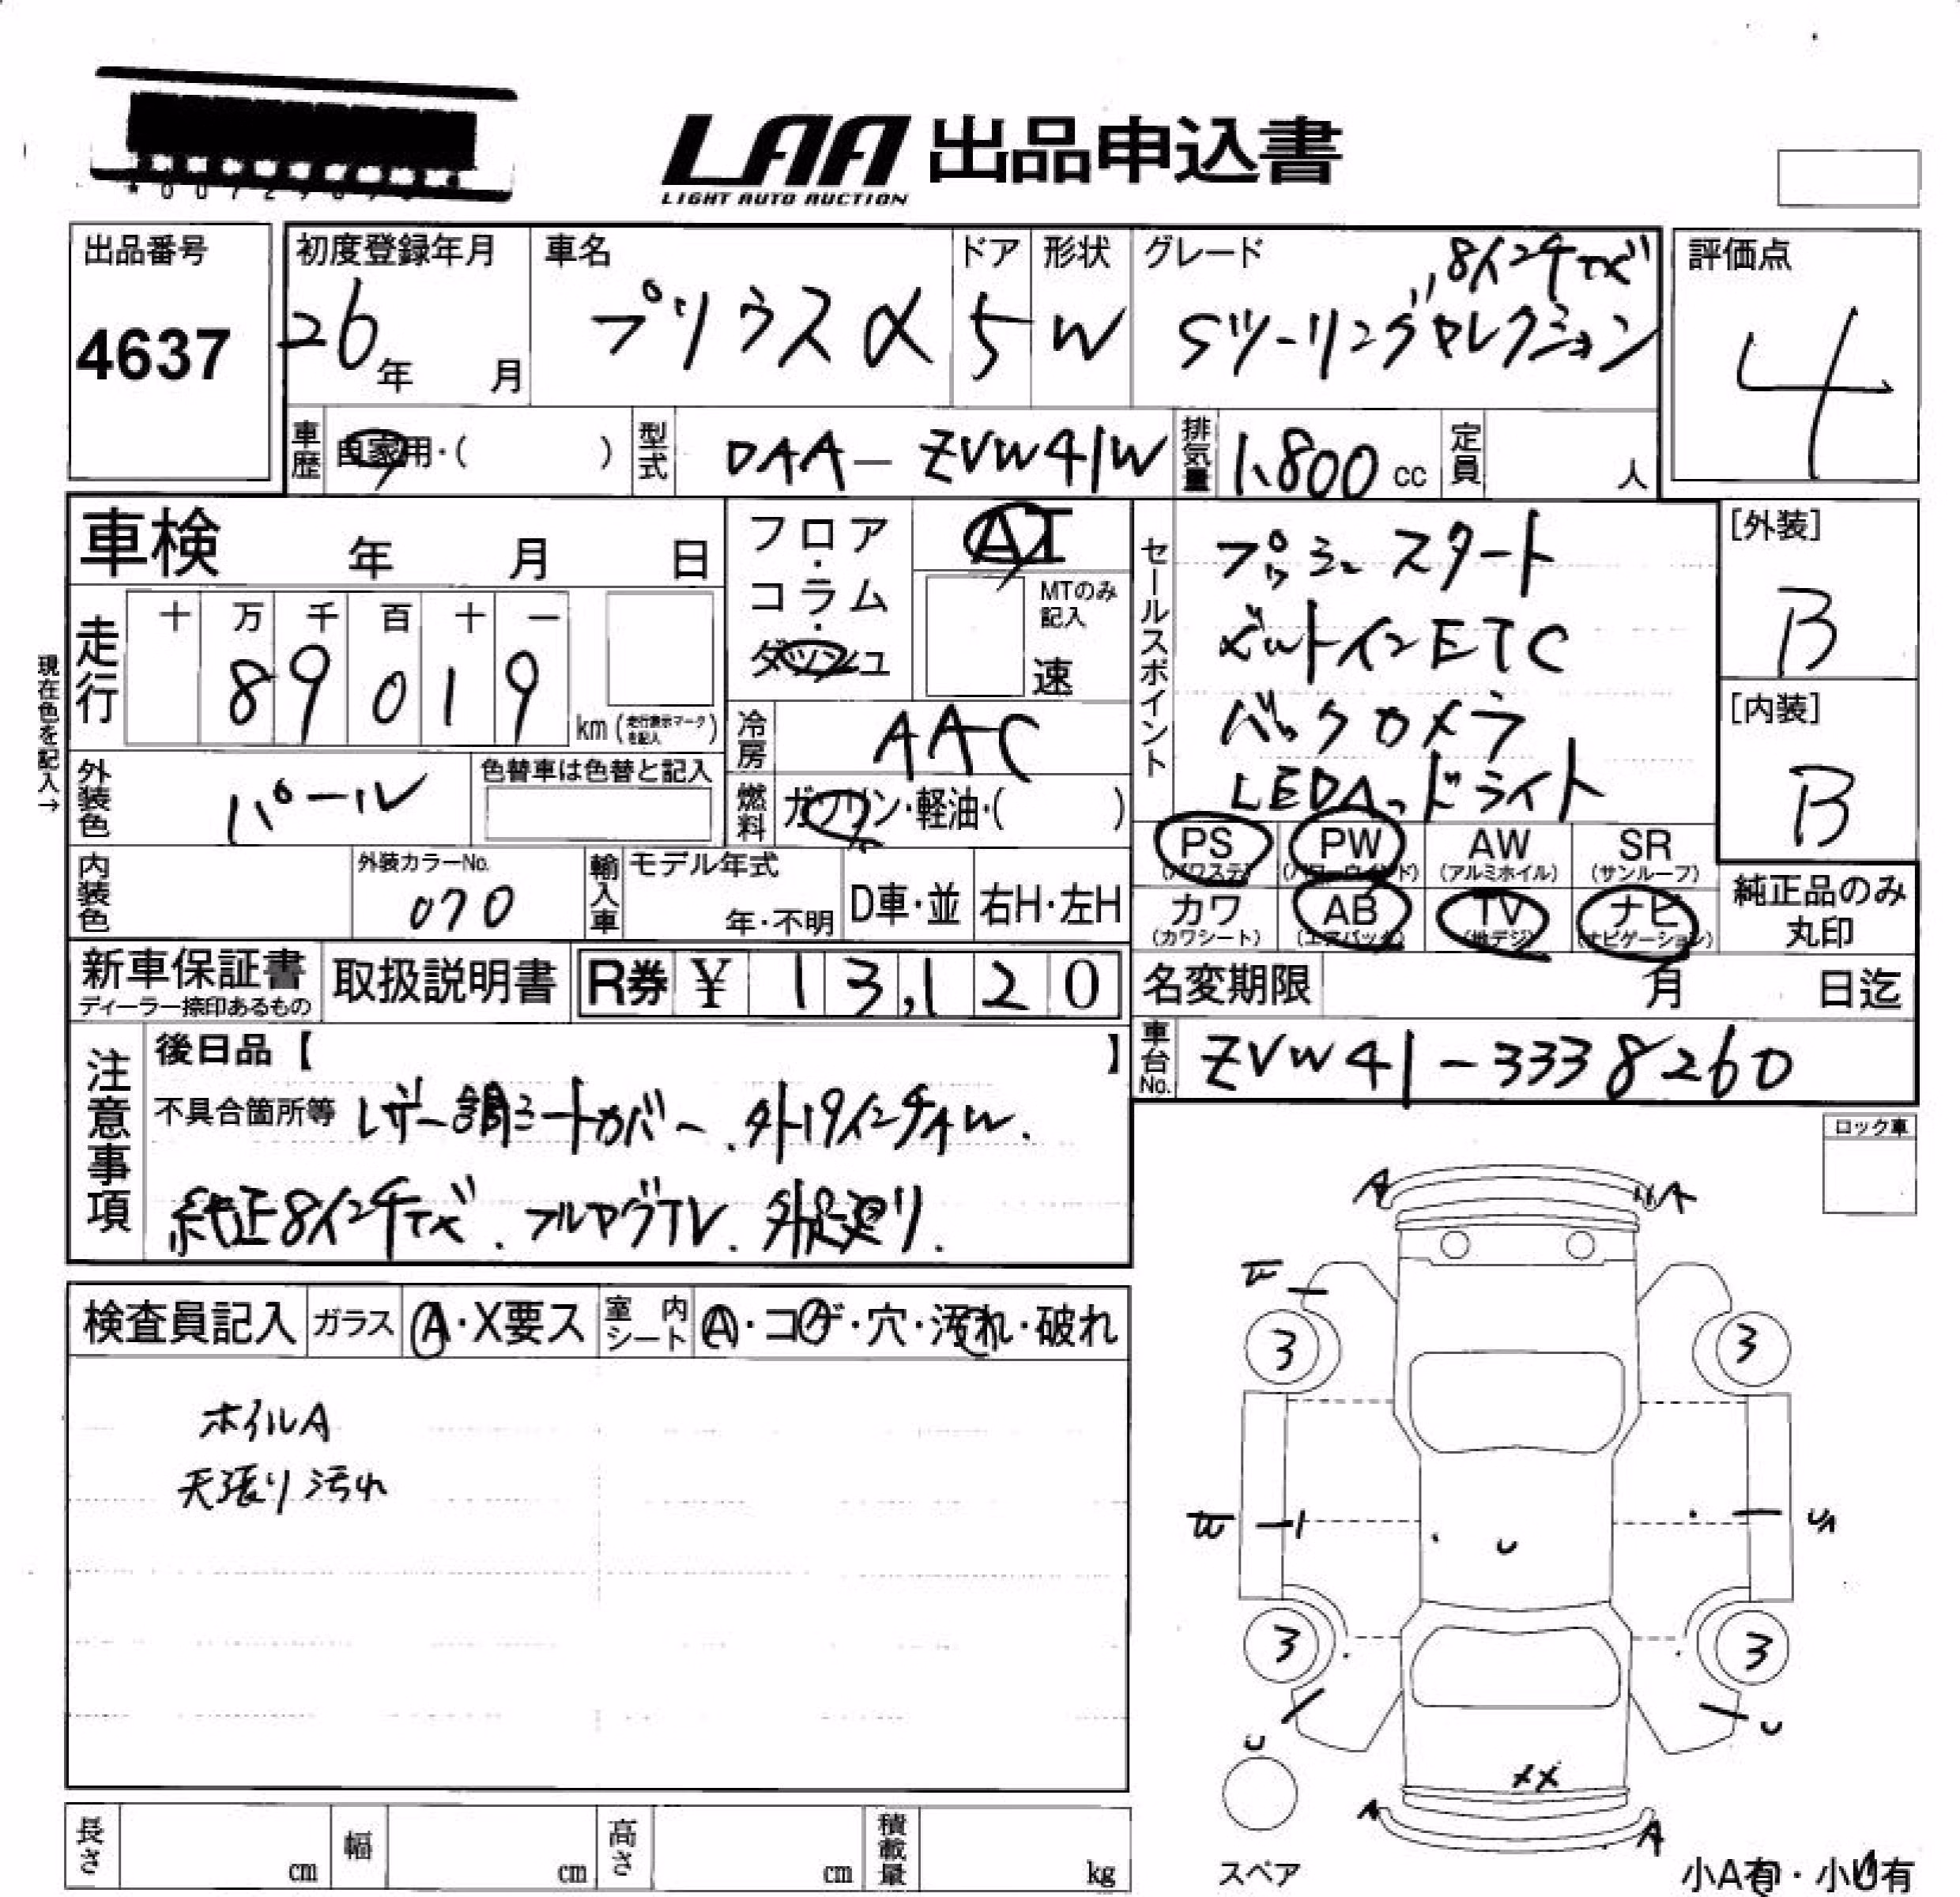 LAA 出品申込書
LIGHT AUTO AUCTION
出品番号
4637
初度登録年月
26年 月
車名
プリウスα
ドア
5
形状
W
グレード
8インチナビ
Sツーリングセレクション
評価点
4
車歴
自家用・( )
型式
DAA-ZVW41W
排気量
1,800 cc
定員
人
車検 年 月 日
フロア・コラム・ダッシュ
AT
MTのみ記入
速
セールスポイント
プッシュスタート
ビルトインETC
バックカメラ
LEDヘッドライト
[外装]
B
[内装]
B
現在色を記入→
走行
十 万 千 百 十 一
8 9 0 1 9
km (走行表示マークを記入)
冷房
AAC
外装色
パール
色替車は色替と記入
燃料
ガソリン・軽油・( )
PS (パワステ)
PW (パワーウインド)
AW (アルミホイル)
SR (サンルーフ)
カワ (カワシート)
AB (エアバック)
TV (地デジ)
ナビ (ナビゲーション)
純正品のみ丸印
内装色
外装カラーNo.
070
輸入車
モデル年式
年・不明
D車・並
右H・左H
新車保証書
ディーラー捺印あるもの
取扱説明書
R券 ¥ 13,120
名変期限 月 日迄
車台No.
ZVW41-3338260
注意事項
後日品【 】
不具合箇所等 レザー調シートカバー、外19インチAW、
純正8インチナビ、フルセグTV、外足廻り、
ロック車
検査員記入
ガラス
A・X要ス
室内シート
A・コゲ・穴・汚れ・破れ
ホイルA
天張り汚れ
A
A
3
3
U
3
3
U
U
XX
A
A
スペア
小A有・小U有
長さ cm
幅 cm
高さ cm
積載量 kg